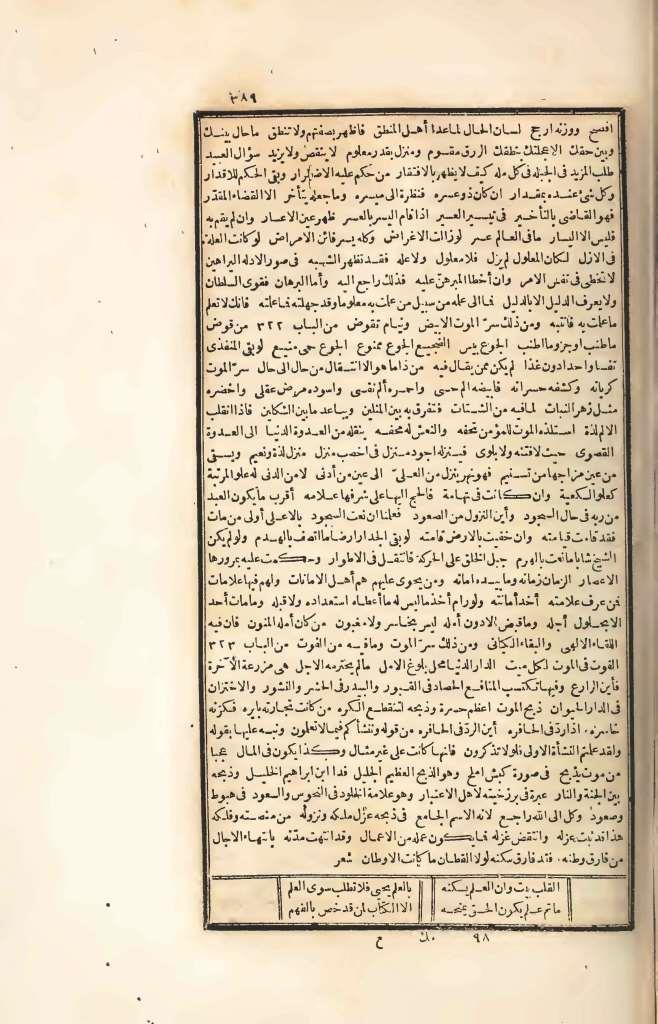 ٣٨٩
افصح ووزنه ارجح لسان الحال لماعدا أهل المنطق فاظهر بصفتهم ولا تنطق ما حال بينك
وبين حقك الاعجلتك خطفك الرزق مقسوم ومنزل بقدر معلوم لا ينقص ولا يزيد سؤال العبيد
طلب المزيد فى الجبله فى كل مله كيف لا يظهر بالافتقار من حكم عليه الاضطرار وبقى الحكم للاقدار
وكل شئ عنده بمقدار ان كان ذو عسره فنظرة الى ميسره وما جعله يتأخر الا القضاء المقدّر
فهو القاضى بالتأخير فى تيسير العسير اذا قام اليسر بالعسر ظهر عين الاعسار وان لم يقم به
فليس الا اليسار ما فى العالم عسر لو زالت الاغراض وكله يسر فأين الامراض لو كانت العلة
فى الازل لكان المعلول لم يزل فلا معلول ولا عله فقد تظهر الشبهه فى صور الادله البراهين
لا تخطى فى نفس الامر وان أخطأ المبرهن عليه فذلك راجع اليه وأما البرهان فقوى السلطان
ولا يعرف الدليل الا بالدليل فما الى علمه من سبيل من علمت به معلوما وقد جهلته فما علمته فانك لا تعلم
ما علمت به فانتبه ومن ذلك سرّ الموت الابيض وتمام تقوض من الباب ٣٢٢ من قوض
ما طنب اوجز وما اطنب الجوع بئس الضجيع الجوع ممنوع الجوع حمى منيع لو بقى المتغذى
نفسا واحدا دون غذا لم يكن ممن يقال فيه من ذا ما هو الا انتقال من حال الى حال سرّ الموت
كرباته وكشفه حسراته فابيضه الم حسى واحمره ألم نفسى واسوده مرض عقلى واخضره
مثل زهر النبات لما فيه من الشتات فتفرق به بين المثلين ويباعد ما بين الشكلين فاذا انقلب
الالم لذة استلذه الموت للمؤمن تحفه والنعش له محفه ينقله من العدوة الدنيا الى العدوة
القصوى حيث لا فتنه ولا بلوى فينزله اجود منزل فى اخصب منزل منزل لذة ونعيم ويسقى
من عين مزاجها من تسنيم فهو نهر ينزل من العلىّ الى عين من أدنى لا من الدنى له علو المرتبة
كعلو الكعبة وان كانت فى تهامة فالحج اليها على شرفها علامه أقرب ما يكون العبد
من ربه فى حال السجود وأين النزول من الصعود فعلمنا ان نعت السجود بالاعلى أولى من مات
فقد قامت قيامته وان خفيت بالارض قامته لو بقى الجدار ارضا ما اتصف بالهدم ولو لم يكن
الشيخ شابا ما نعت بالهرم جبل الخلق على الحركة فانتقل فى الاطوار وحكمت عليه بمرورها
الاعصار الزمان زمانه وما بيده امانه ومن يحوى عليهم هم أهل الامانات ولهم فيها علامات
فمن عرف علامته أخذ أمانته ولو رام أخذ ما ليس له ما أعطاه استعداده ولا قبله وما مات أحد
الا بحلول أجله وما قبض الا دون أمله ليس بخاسر ولا مغبون من كان أمله المنون فان فيه
اللقاء الالهى والبقاء الكيانى ومن ذلك سرّ الموت وما فيه من الفوت من الباب ٣٢٣
الفوت فى الموت لكل ميت الدار الدنيا محل بلوغ الامل ما لم يخترمه الاجل هى مزرعة الآخرة
فأين الزارع وفيها تكتسب المنافع الحصاد فى القبور والبيدر فى الحشر والنشور والاختزان
فى الدار الحيوان ذبح الموت اعظم حسرة وذبحه لتنقطع الكره من كانت تجارته بايره فكرّته
خاسره اذا ردّ فى الحافره أين الردّ فى الحافره من قوله وننشأكم فيما لا تعلمون ونبه عليها بقوله
ولقد علمتم النشأة الاولى فلولا تذكرون فانها كانت على غير مثال وكذا يكون فى المال عجبا
من موت يذبح فى صورة كبش املح وهو الذبح العظيم الجليل فدا ابن ابراهيم الخليل وذبحه
بين الجنة والنار عبرة فى برزخيته لاهل الاعتبار وهو علامة الخلود فى النحوس والسعود فى هبوط
وصعود وكل الى الله راجع لانه الاسم الجامع فى ذبحه عزل ملكه ونزوله من منصته وفلكه
هذا قد ثبت عزله وانتقض غزله فما يكون عمله من الاعمال وقد انتهت مدّته بانتهاء الاجال
من فارق وطنه فقد فارق سكنه لولا القطان ما كانت الاوطان شعر
القلب بيت وان العلم يسكنه بالعلم يحيى فلا تطلب سوى العلم
ما تم علم يكون الحق يمنحه الا الكتاب لمن قد خص بالفهم
٩٨ مك ح